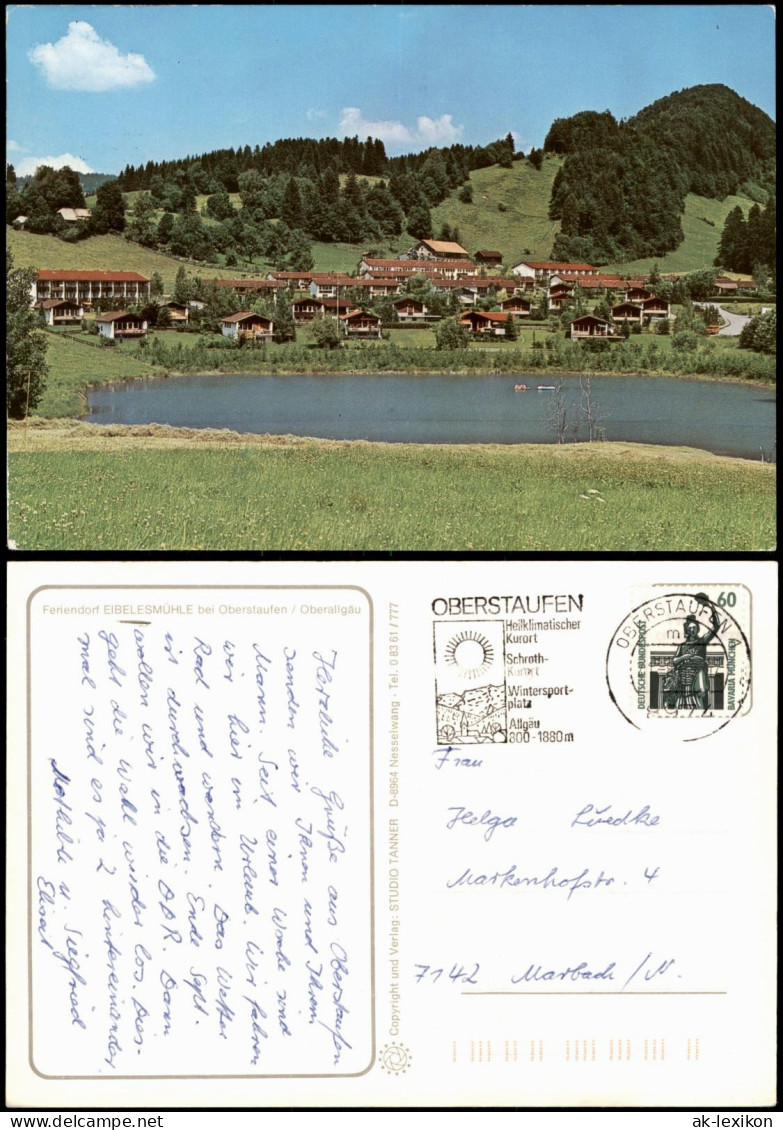 Feriendorf EIBELESMÜHLE bei Oberstaufen / Oberallgäu
Herzliche Grüße aus Oberstaufen
senden wir Ihnen und Ihrem
Mann. Seit einer Woche sind
wir hier im Urlaub. Wir fahren
Rad und wandern. Das Wetter
ist durchwachsen. Ende Sept.
wollen wir in die DDR. Dann
geht die Wahl wieder los. Dies-
mal sind es ja 2 hintereinander.
u. Siegfried
Copyright und Verlag: STUDIO TANNER D-8964 Nesselwang · Tel. 0 83 61 / 777
OBERSTAUFEN
Heilklimatischer
Kurort
Schroth-
Kurort
Wintersport-
platz
Allgäu
800-1880m
OBERSTAUFEN
60
DEUTSCHE BUNDESPOST
BAVARIA MÜNCHEN
Frau
Helga Luedke
Markenhofstr. 4
7142 Marbach/N.
ak-ansichtskarten.de
ak-lexikon